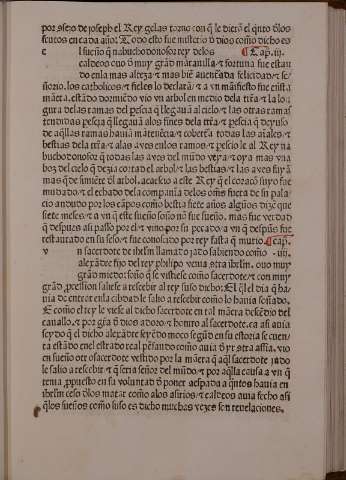 por seso de joseph el Rey gelas torno con q̃ le dierõ el q̃nto dlos
frutos en cada año. Todo esto fue misterio d̃ dios comõ dicho es
e l sueño q̃ nabuchodonosor rey delos Cap. iij.
caldeos ouo ṽ muy grãd marauilla ⁊ fortuna fue estan
do en la mas alteza ⁊ mas biẽ auenẽda felicidad ⁊ se
ñorio. los catholicos ⁊ fieles lo declarã ⁊ a vn manifiesto fue en esta
maẽra. estãdo dormiẽdo vio vn arbol en medio dela trr̃a ⁊ la lon
gura delas ramas del pescia q̃ llegaua al cielo ⁊ las otras ramas
tendidas pescia q̃ llegauã alos fines dela trr̃a ⁊ pescia q̃ deyuso
de aq̃llas ramas hauia mãtenẽcia ⁊ cobertã todas las aĩales ⁊
bestias dela trr̃a ⁊ alas aves en los ramos ⁊ pescio le al Rey na
buchodonosor q̃ todas las aves del mũdo veya ⁊ oya mas vna
boz del cielo q̃ dezia cortad el arbol ⁊ las bestias ⁊ las aves fuyã
mas q̃ de simiẽte dl arbol. acaescio a este Rey q̃ el coraçõ suyo fue
mudado ⁊ el echado dela compania delos omẽs fuera de su pala
cio andudo por los cãpos comõ bestia siete años algũos dizẽ que
siete meses ⁊ a vn q̃ este sueño soño nõ fue sueño. mas fue verdad
q̃ despues asi passo por el ⁊ vino por su pecado ⁊ a vn q̃ despũs fue
restaurado en su seso ⁊ fue conoscido por rey fasta q̃ murio. Cap.
v n sacerdote de ihrlm llamado jado sabiendo comõ iiij.
alexãdre fijo del rey philipo venia strã ihrlm. ouo muy
grãd miedo: soñõ q̃ se vistiese comõ sacerdote ⁊ con muy
grãd ꝓcession saliese a rescebir al rey suso dicho: E q̃l el dia q̃ ha
uia de entrar en la cibdad le salio a rescebir comõ lo hauia soñado.
E comõ el rey le viese al dicho sacerdote en tal maẽra descẽdio del
cauallo ⁊ por grã d̃ dios adoro ⁊ honrro al sacerdote. ca asi auia
seydo q̃ el dicho alexãdre seyẽdo moço segũd en su estoria se cuen
ta estãdo enel estrado real pẽsando comõ auia d̃ yr strã assia. vio
en sueño otro sacerdote vestido por la maẽra q̃ aq̃l sacerdote jado
le salio a rescebir ⁊ q̃ seria señor del mũdo ⁊ por aq̃lla causa a vn q̃
tenia ꝓpuesto en su voluntad d̃ poner a espada a q̃ntos hauia en
ihrlm ceso dlos matar comõ alos asirios ⁊ caldeos auia fecho asi
q̃ los sueños comõ suso es dicho muchas vezes son reuelaciones.